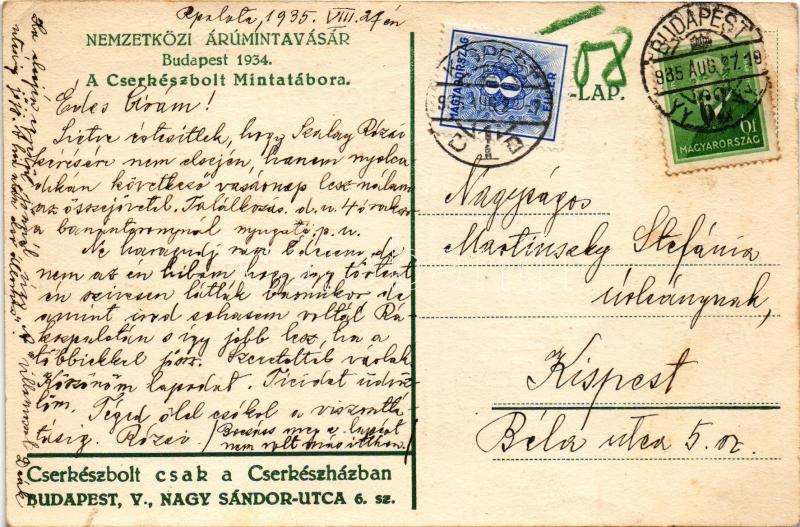 1935. VIII. 27 én
NEMZETKÖZI ÁRÚMINTAVÁSÁR
Budapest 1934.
A Cserkészbolt Mintatábora.
Édes Cirám!
Sietve értesitlek, hogy Szalay Rózsi
kérésére nem elsején, hanem nyolca
dikán következő vasárnap lesz nálam
az összejövetel. Találkozás d.u. 4 órakor
a nyugati p.u.
Ne haragudj meg Édesem, de
nem az én hibám hogy igy történt
én szivesen látlak bármikor de
amint irod sohasem voltál Rá-
kospalotán s igy jobb lesz, ha a
többiekkel jösz. Szeretettel várlak
Köszönöm lapodat. Ticidet üdvöz
löm. Téged ölel csókol a viszontlá
tásig. Rózsi
(Bocsáss meg a lapért
nem volt más itthon.)
Cserkészbolt csak a Cserkészházban
BUDAPEST, V., NAGY SÁNDOR-UTCA 6. sz.
-LAP.
MAGYARORSZÁG
8
BUDAPEST
935 AUG. 27. 19
10
MAGYARORSZÁG
Nagyságos
Martinszky Stefánia
úrleánynak,
Kispest
Béla utca 5. sz.